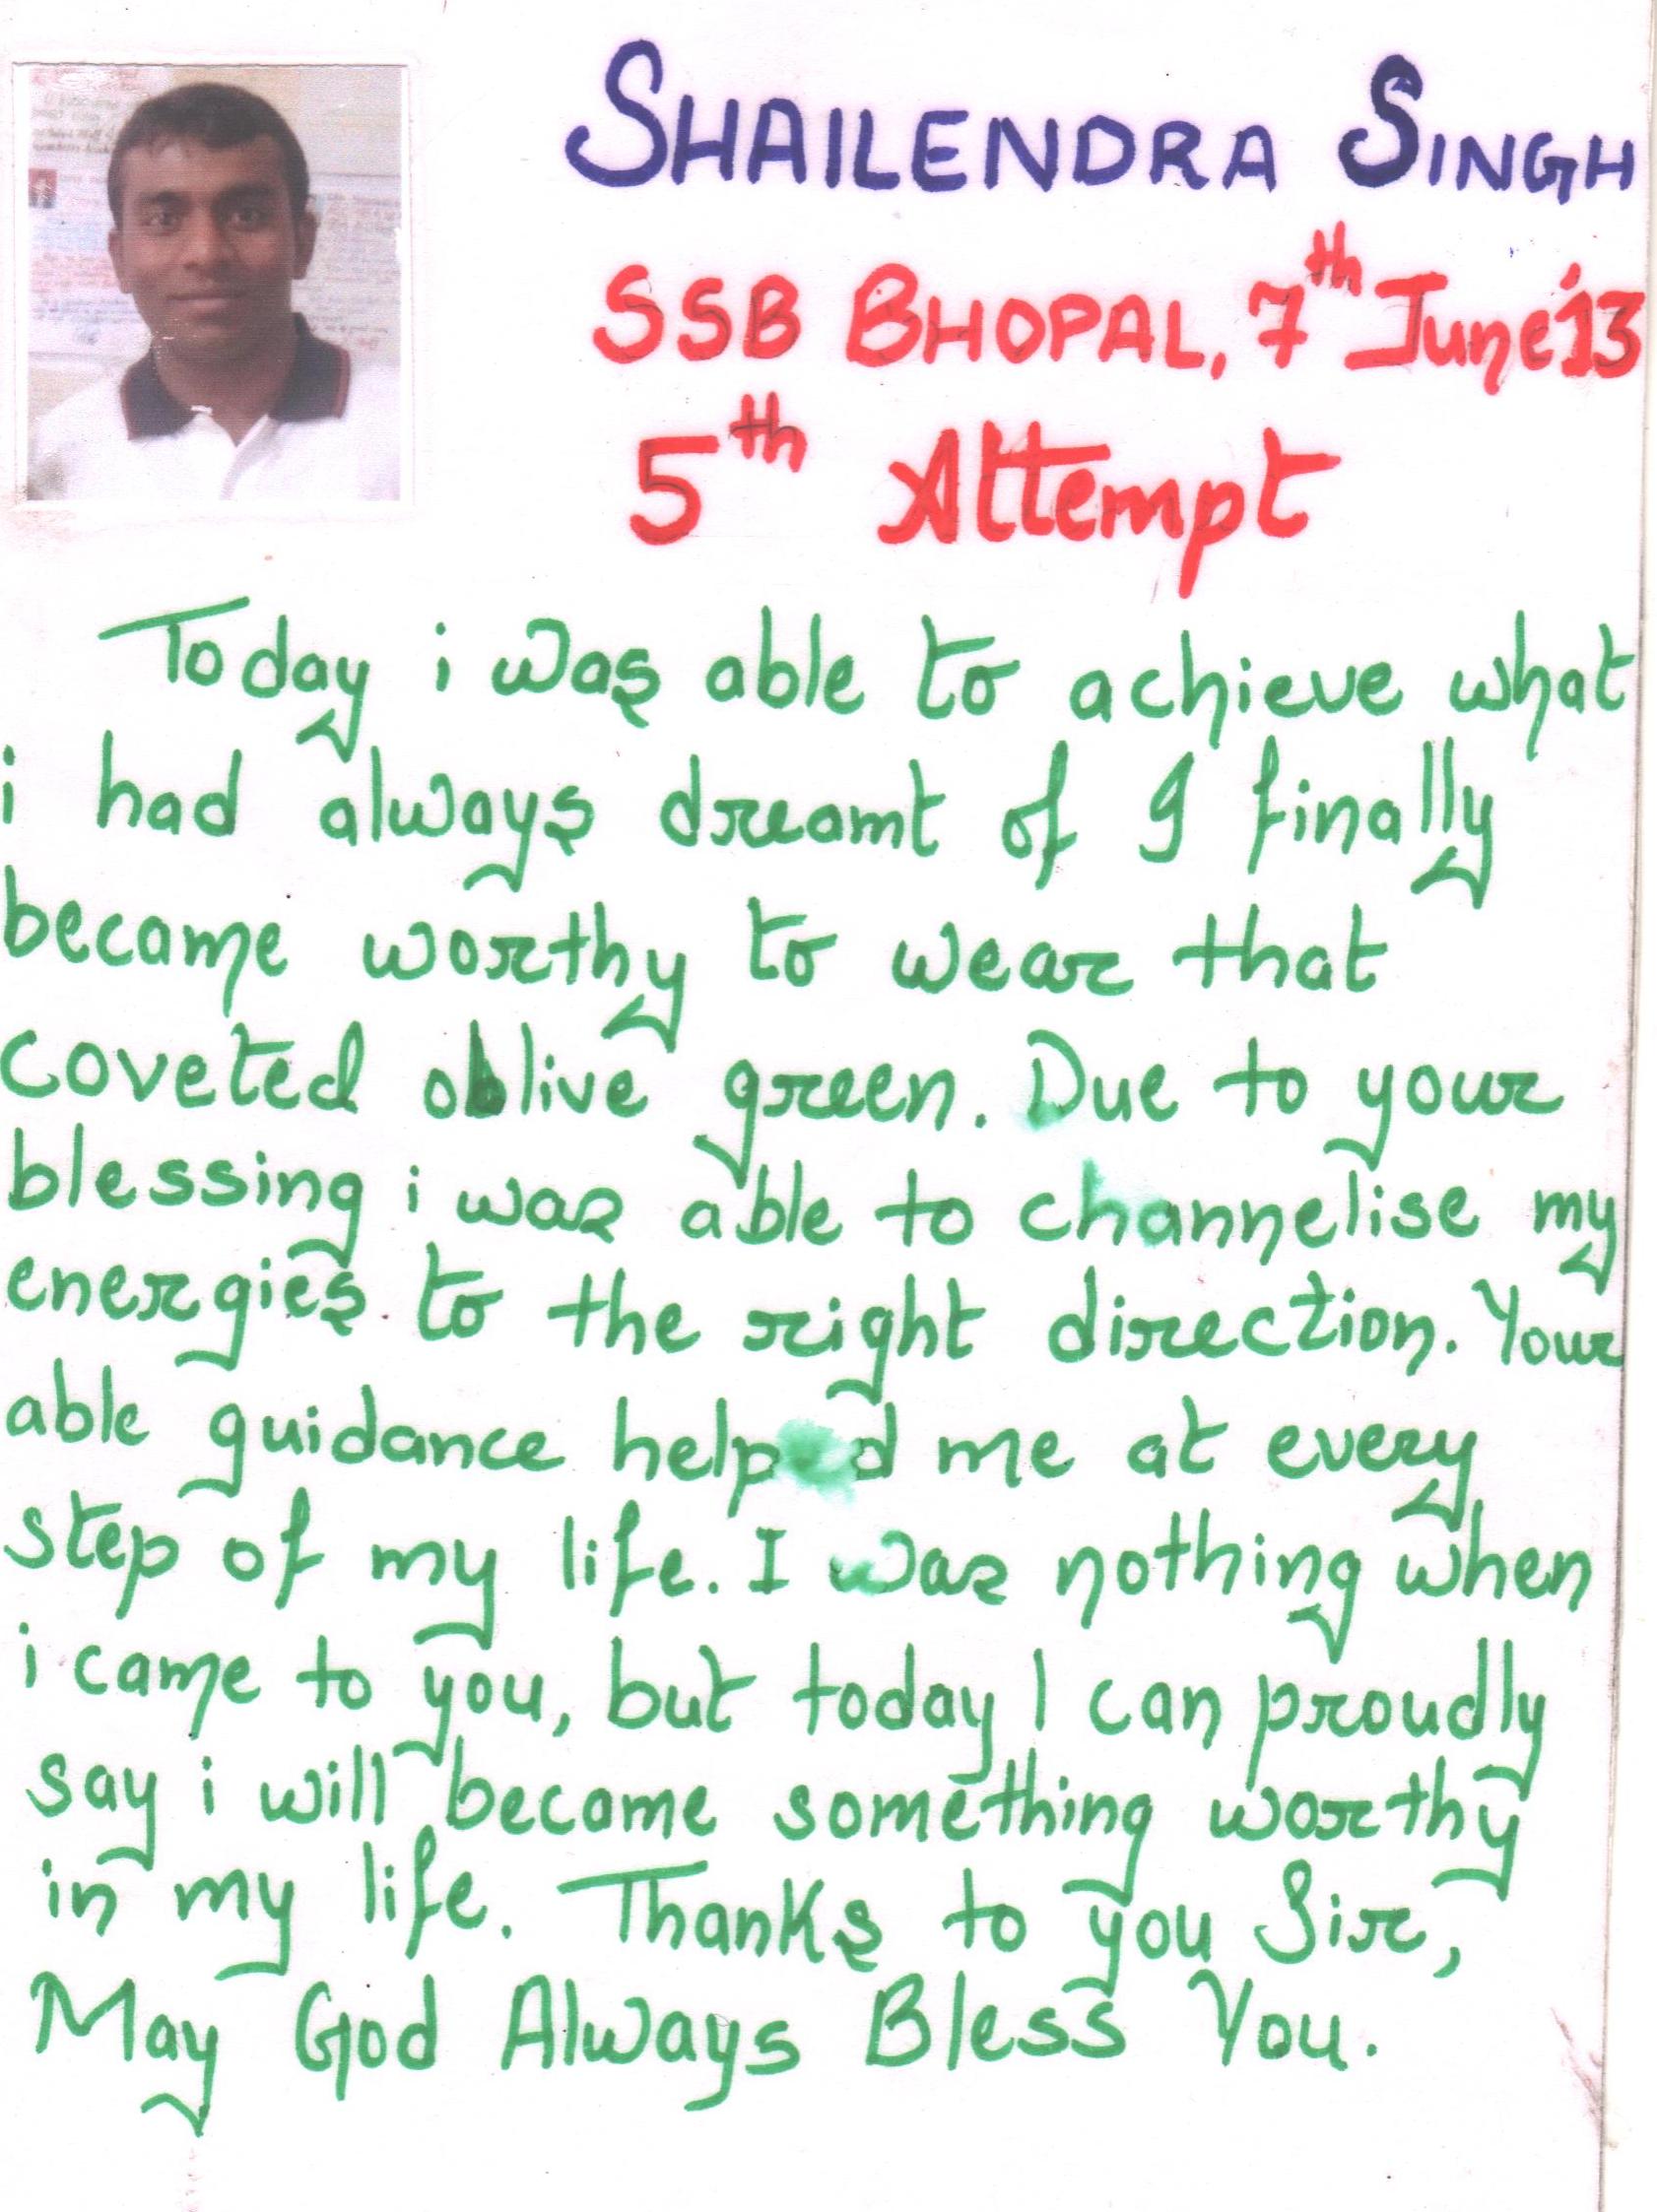 SHAILENDRA SINGH
SSB BHOPAL, 7th June'13
5th Attempt
Today i was able to achieve what
i had always dreamt of I finally
became worthy to wear that
coveted oblive green. Due to your
blessing i was able to channelise my
energies to the right direction. Your
able guidance helped me at every
step of my life. I was nothing when
i came to you, but today I can proudly
say i will become something worthy
in my life. Thanks to you Sir,
May God Always Bless You.